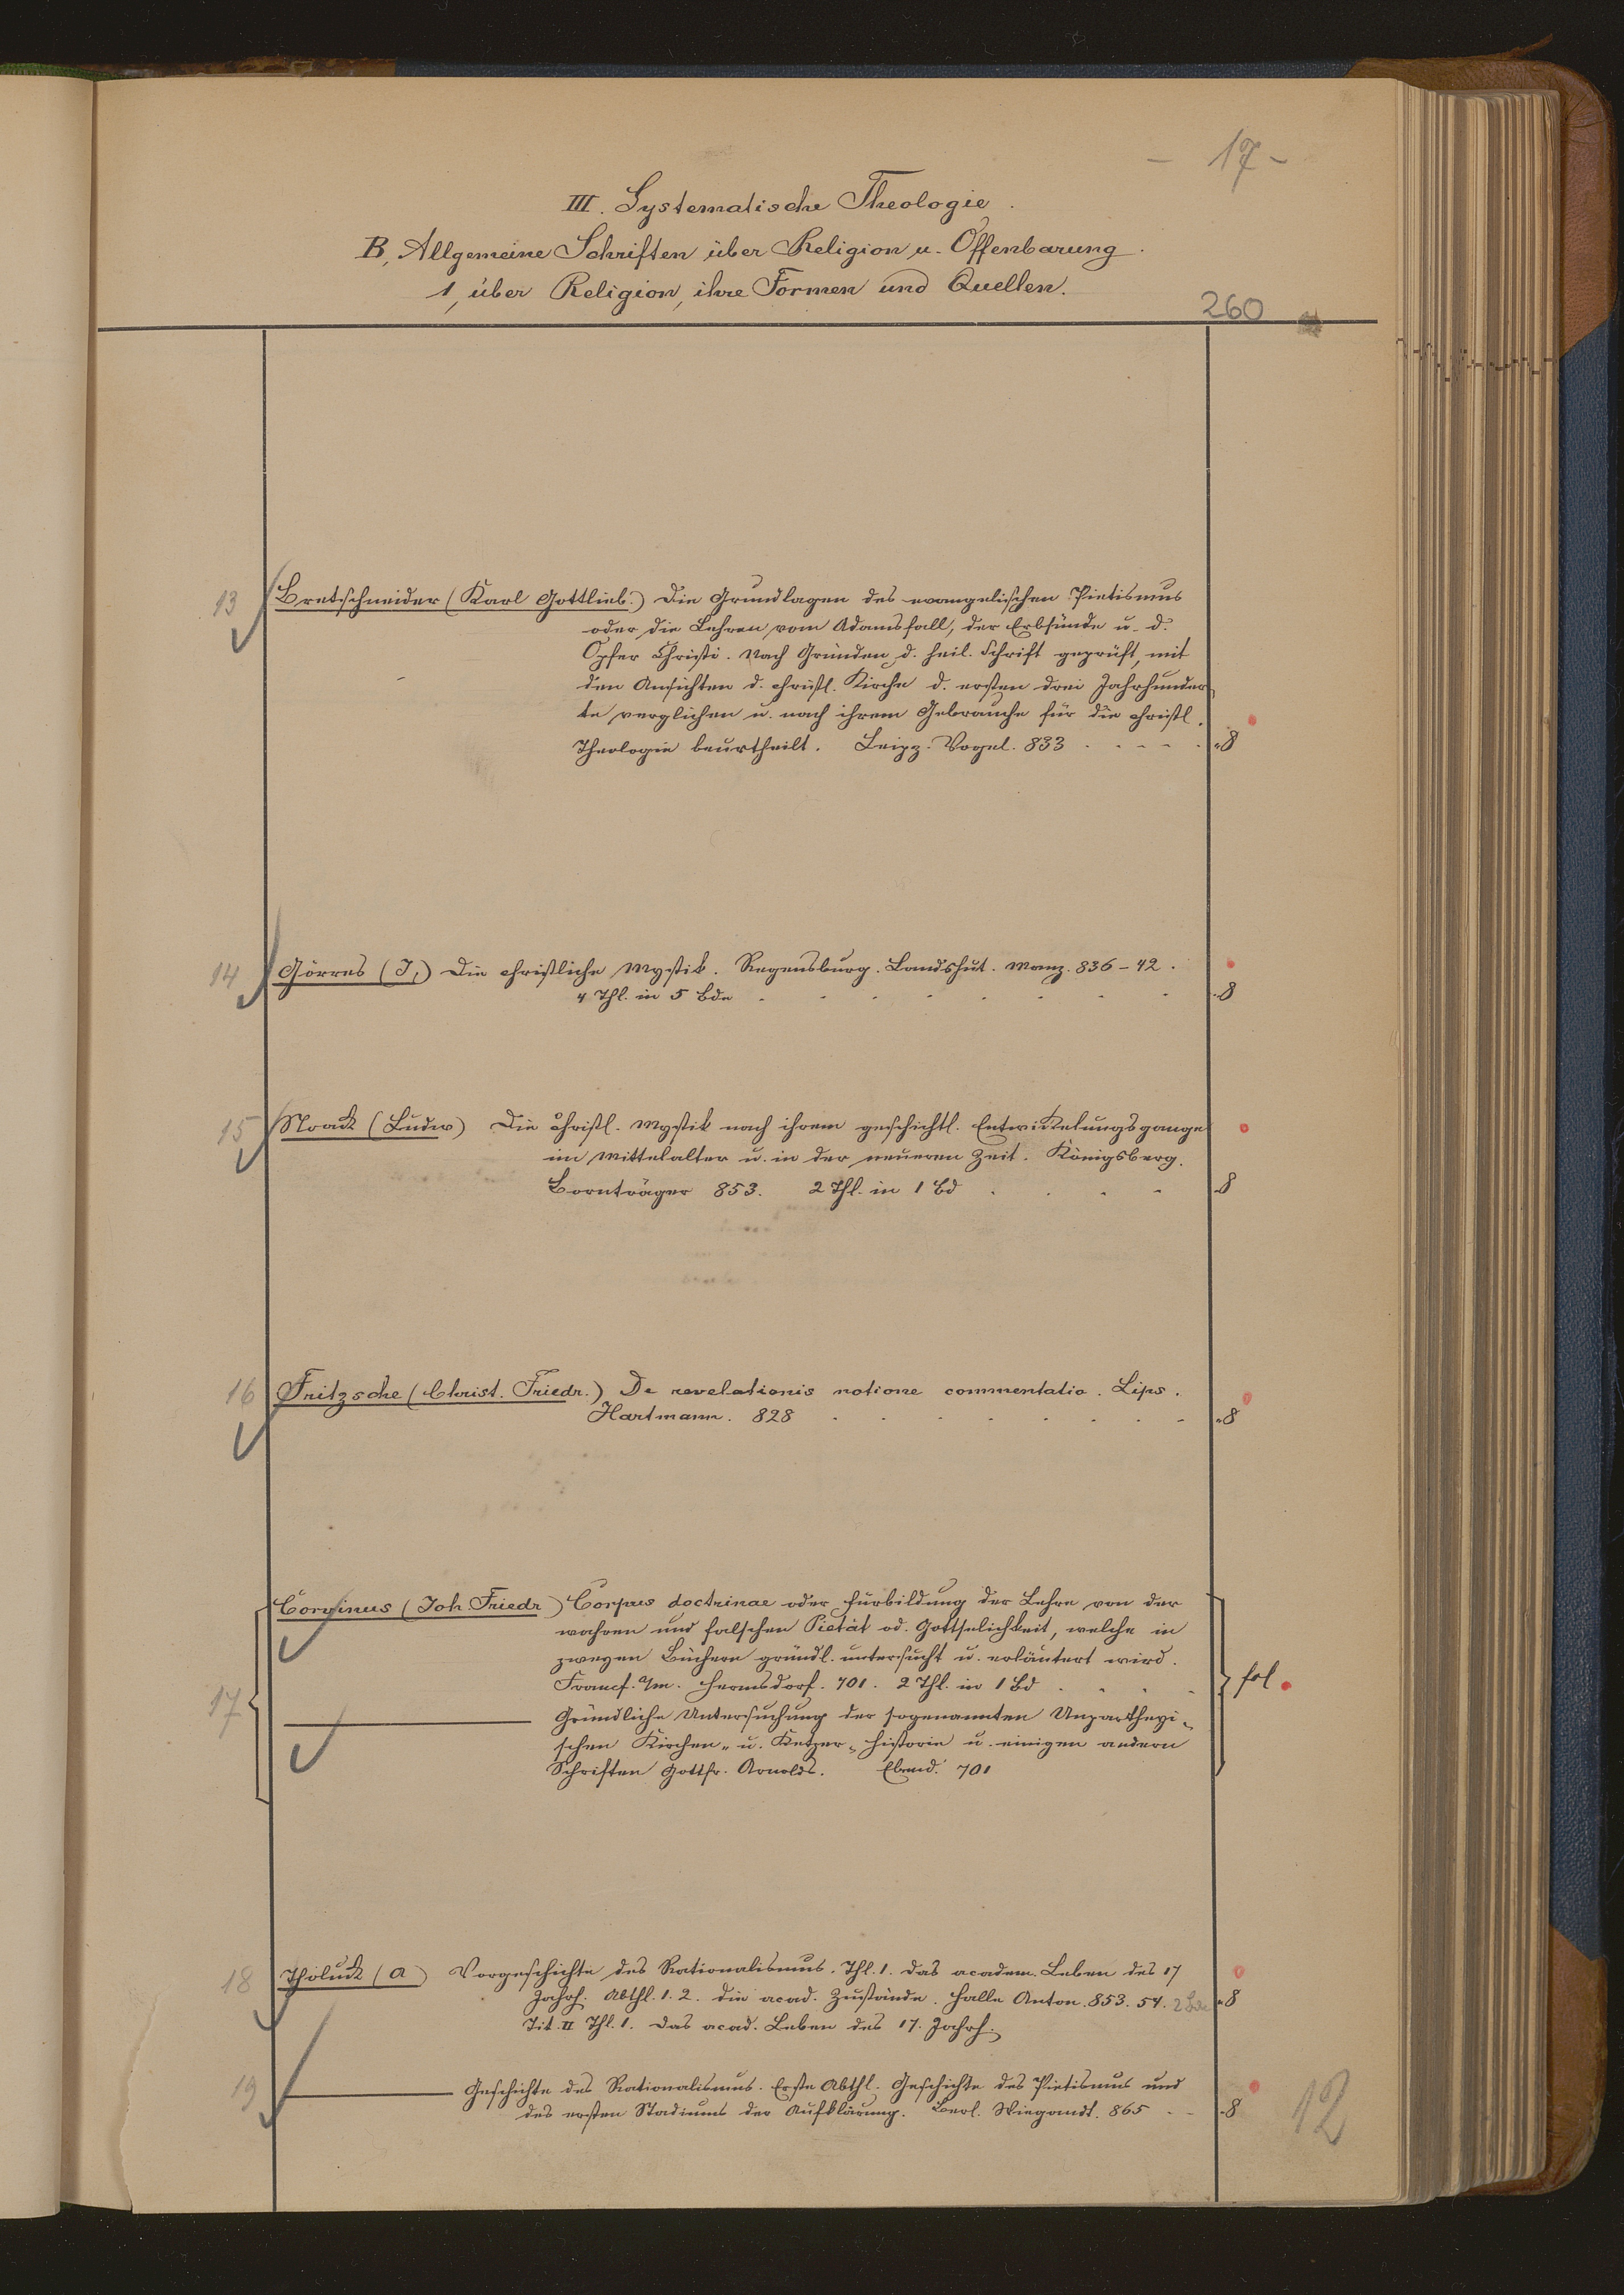 - 17 -
III. Systematische Theologie.
B, Allgemeine Schriften über Religion u. Offenbarung.
1, über Religion, ihre Formen und Quellen.
260
13 Bretschneider (Karl Gottlieb.) Die Grundlagen des evangelischen Pietismus
oder die Lehren vom Adamsfall, der Erbsünde u. d.
Opfer Christi. Nach Gründen d. heil. Schrift geprüft, mit
den Ansichten d. christl. Kirche d. ersten drei Jahrhunder
te verglichen u. nach ihrem Gebrauche für die christl.
Theologie beurtheilt. Leipz. Vogel. 833 . . . . . 8
14 Görres (J,) Die christliche Mystik. Regensburg. Landshut. Manz. 836-42.
4 Thl. in 5 Bde . . . . . . . . 8
15 Noack (Ludw) Die christl. Mystik nach ihrem geschichtl. Entwickelungsgange
im Mittelalter u. in der neueren Zeit. Königsberg.
Bornträger 853. 2 Thl. in 1 Bd . . . . 8
16 Fritzsche (Christ. Friedr.) De revelationis notione commentatio. Lips.
Hartmann. 828 . . . . . . . . 8
Corvinus (Joh. Friedr) Corpus doctrinae oder Fürbildung der Lehre von der
wahren und falschen Pietät od. Gottselichkeit, welche in
zweyen Büchern gründl. untersucht u. erläutert wird.
Francf. a/m. Hermsdorf. 701. 2 Thl. in 1 Bd . . . fol.
17 ——— Gründliche Untersuchung der sogenannten Unpartheyi-
schen Kirchen- u. Ketzer-Historie u. einigen andern
Schriften Gottfr. Arnolds. Ebend. 701
18 Tholuck (A) Vorgeschichte des Rationalismus. Thl. 1. Das academ. Leben des 17
Jahrh. Abthl. 1. 2. die acad. Zustände. Halle Anton. 853. 54. 2 Bde 8
Tit. II Thl. 1. Das acad. Leben des 17. Jahrh.
19 ——— Geschichte des Rationalismus. Erste Abthl. Geschichte des Pietismus und
des ersten Stadiums der Aufklärung. Berl. Wiegandt. 865 . . 8
12